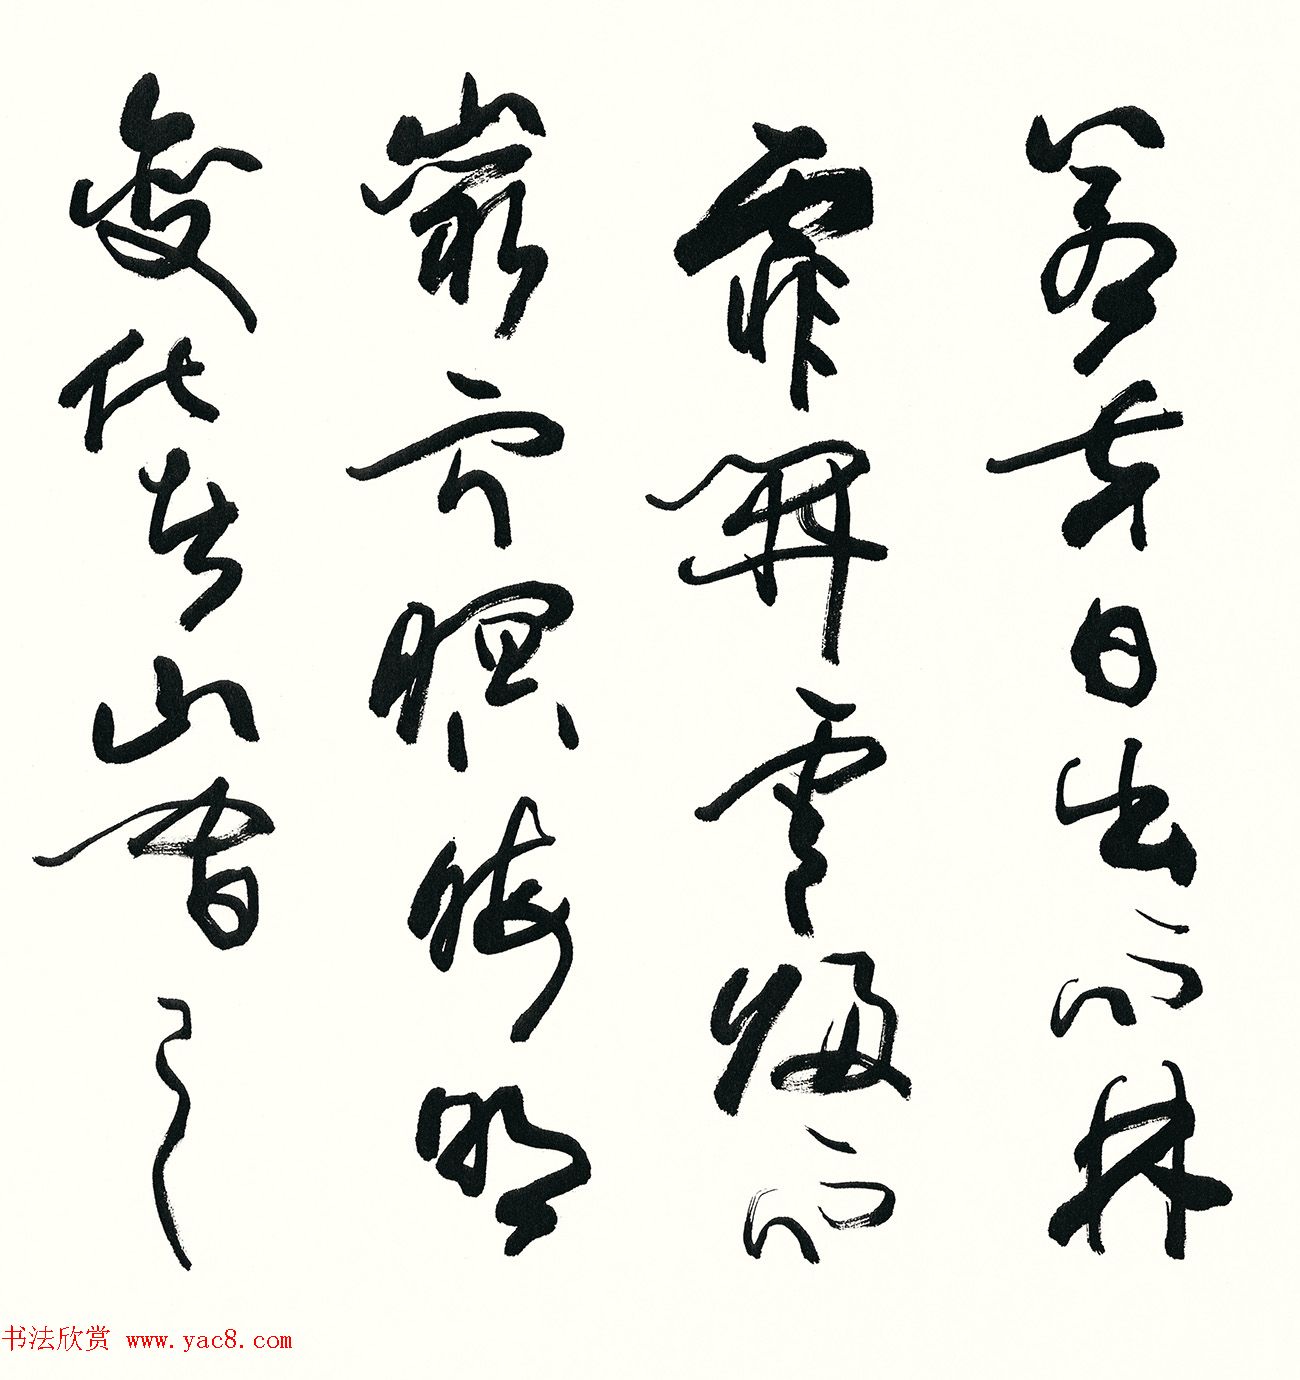 若夫日出而林
霏開雲歸而
巖穴暝晦明
變化者山間之
书法欣赏 www.yac8.com